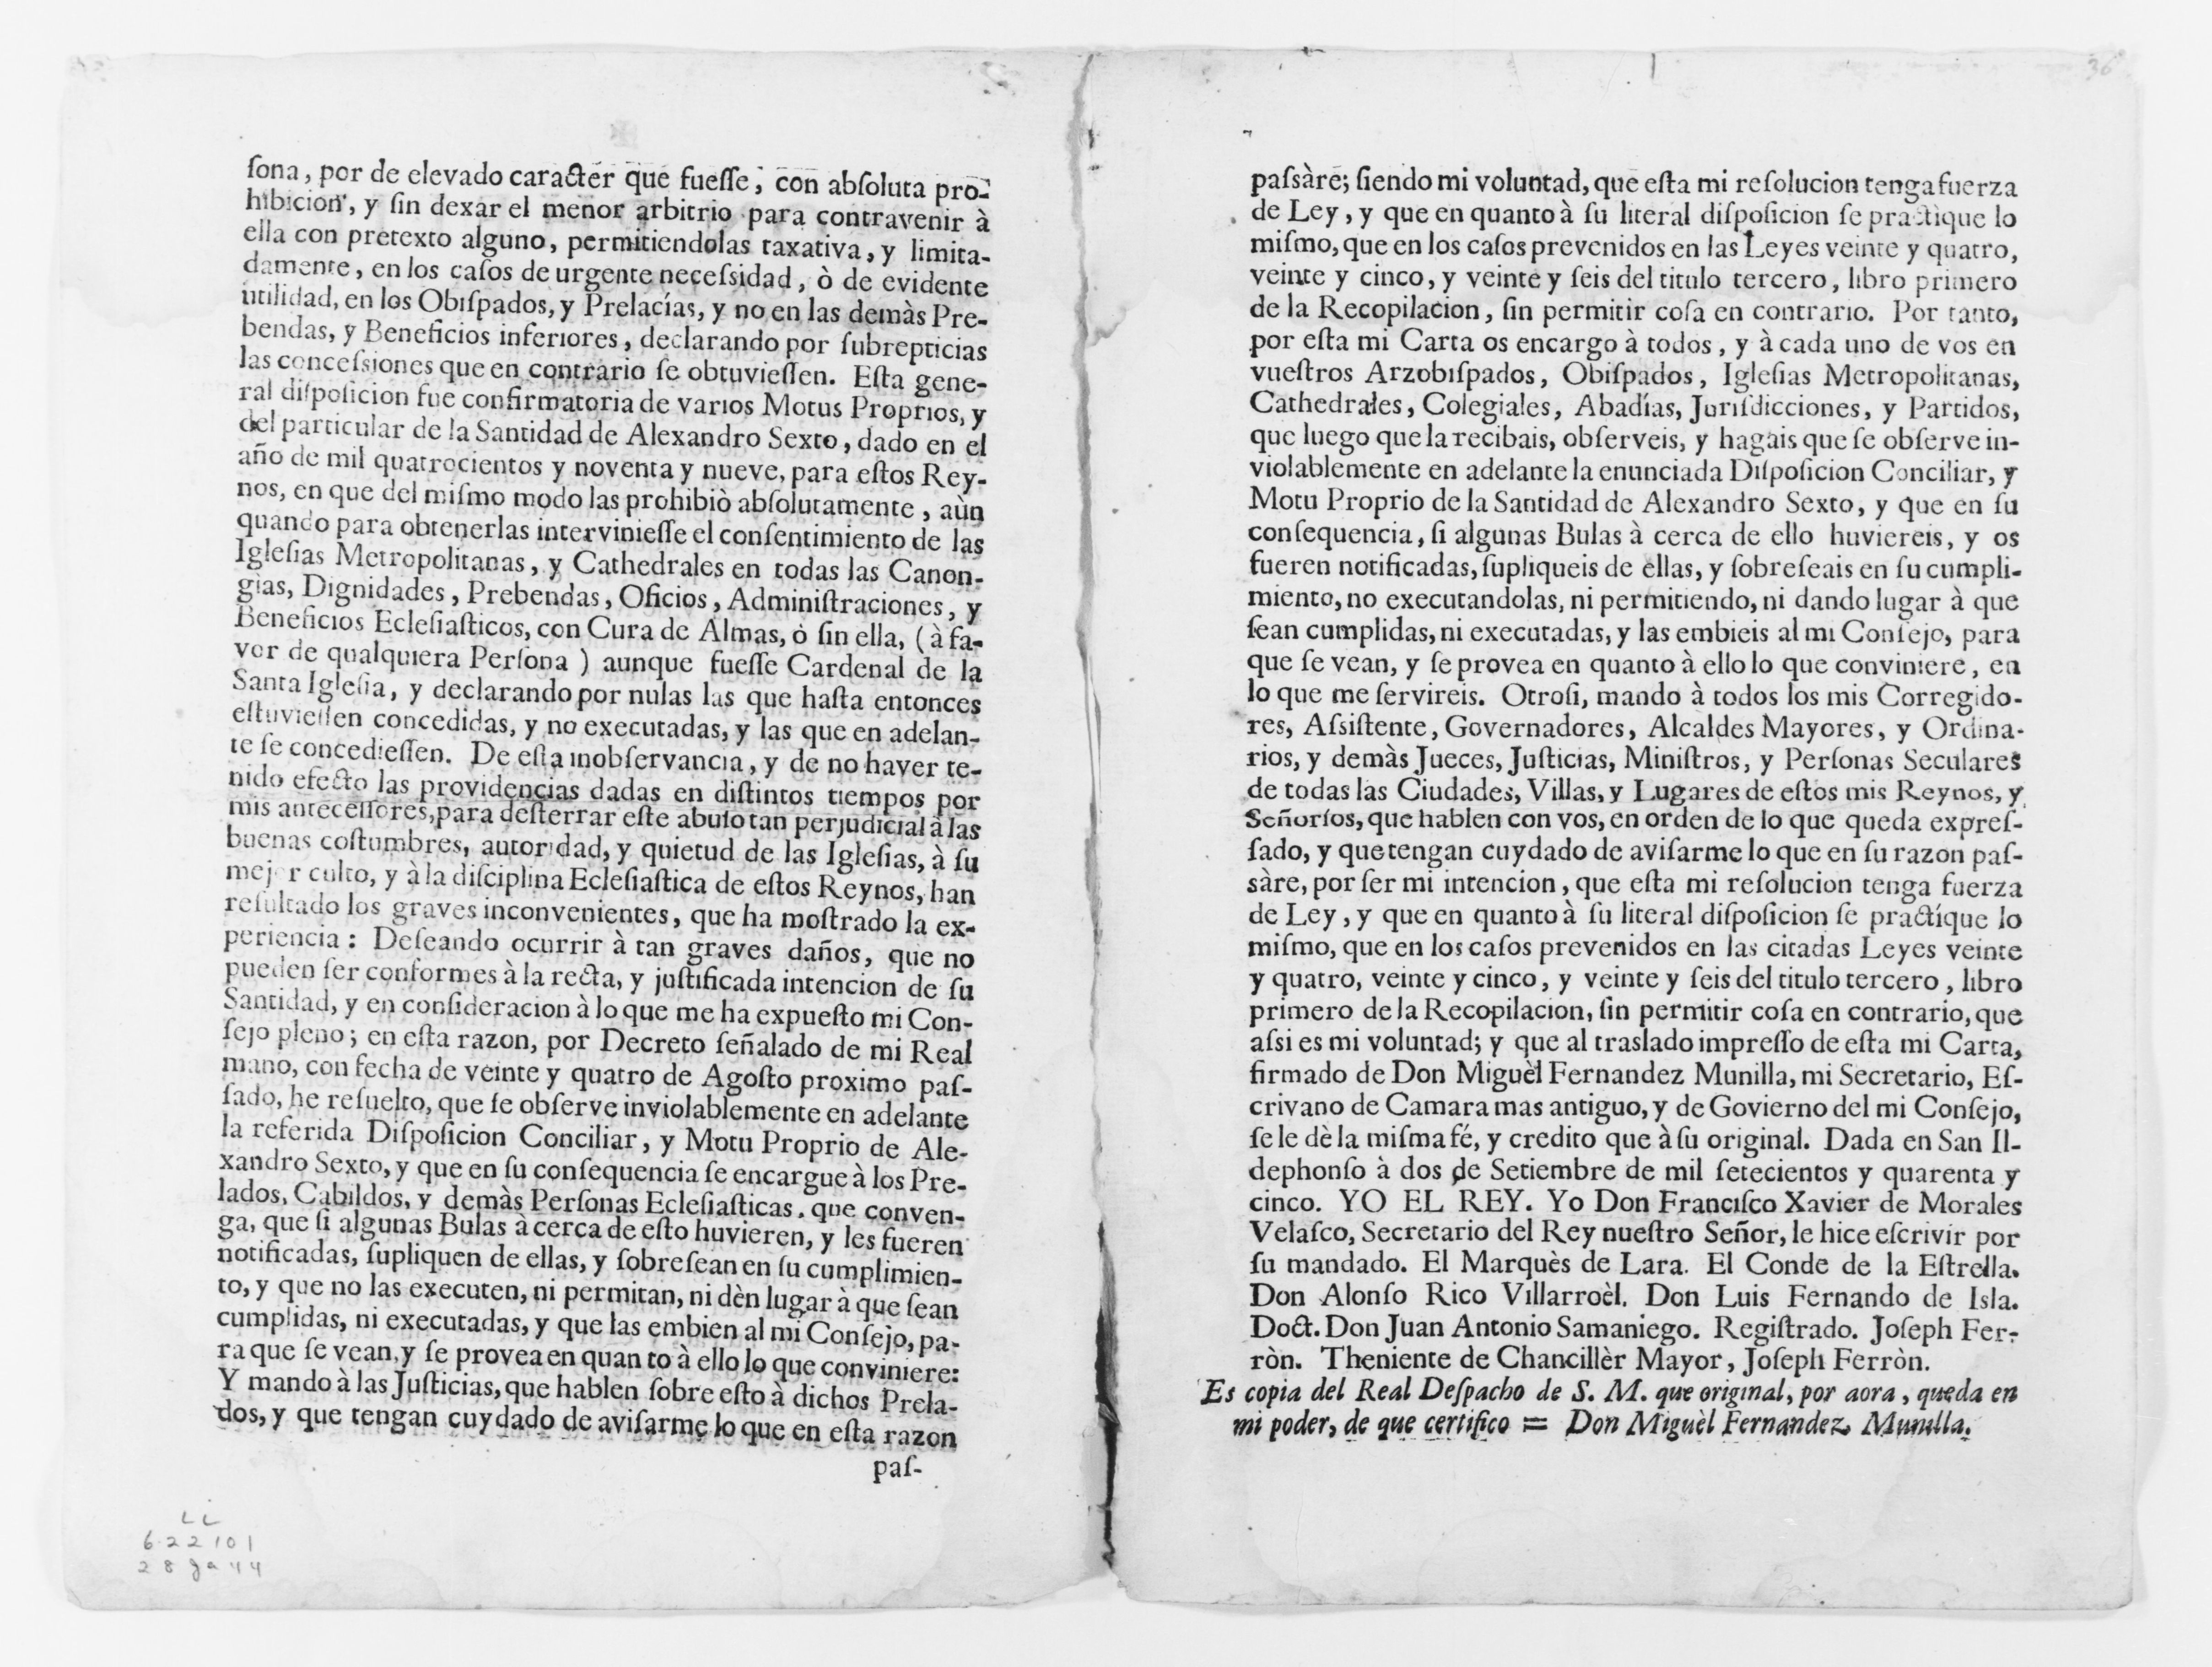 ſona, por de elevado caracter que fueſſe, con abſoluta pro-
hibicion, y ſin dexar el menor arbitrio para contravenir à
ella con pretexto alguno, permitiendolas taxativa, y limita-
damente, en los caſos de urgente neceſsidad, ò de evidente
utilidad, en los Obiſpados, y Prelacías, y no en las demàs Pre-
bendas, y Beneficios inferiores, declarando por ſubrepticias
las conceſsiones que en contrario ſe obtuvieſſen. Eſta gene-
ral diſpoſicion fue confirmatoria de varios Motus Proprios, y
del particular de la Santidad de Alexandro Sexto, dado en el
año de mil quatrocientos y noventa y nueve, para eſtos Rey-
nos, en que del miſmo modo las prohibiò abſolutamente, aùn
quando para obtenerlas intervinieſſe el conſentimiento de las
Igleſias Metropolitanas, y Cathedrales en todas las Canon-
gias, Dignidades, Prebendas, Oficios, Adminiſtraciones, y
Beneficios Ecleſiaſticos, con Cura de Almas, ò ſin ella, (à fa-
vor de qualquiera Perſona) aunque fueſſe Cardenal de la
Santa Igleſia, y declarando por nulas las que haſta entonces
eſtuvieſſen concedidas, y no executadas, y las que en adelan-
te ſe concedieſſen. De eſta inobſervancia, y de no haver te-
nido efecto las providencias dadas en diſtintos tiempos por
mis anteceſſores, para deſterrar eſte abuſo tan perjudicial à las
buenas coſtumbres, autoridad, y quietud de las Igleſias, à ſu
mejor culto, y à la diſciplina Ecleſiaſtica de eſtos Reynos, han
reſultado los graves inconvenientes, que ha moſtrado la ex-
periencia: Deſeando ocurrir à tan graves daños, que no
pueden ſer conformes à la recta, y juſtificada intencion de ſu
Santidad, y en conſideracion à lo que me ha expueſto mi Con-
ſejo pleno; en eſta razon, por Decreto ſeñalado de mi Real
mano, con fecha de veinte y quatro de Agoſto proximo paſ-
ſado, he reſuelto, que ſe obſerve inviolablemente en adelante
la referida Diſpoſicion Conciliar, y Motu Proprio de Ale-
xandro Sexto, y que en ſu conſequencia ſe encargue à los Pre-
lados, Cabildos, y demàs Perſonas Ecleſiaſticas, que conven-
ga, que ſi algunas Bulas à cerca de eſto huvieren, y les fueren
notificadas, ſupliquen de ellas, y ſobreſean en ſu cumplimien-
to, y que no las executen, ni permitan, ni dèn lugar à que ſean
cumplidas, ni executadas, y que las embien al mi Conſejo, pa-
ra que ſe vean, y ſe provea en quanto à ello lo que conviniere:
Y mando à las Juſticias, que hablen ſobre eſto à dichos Prela-
dos, y que tengan cuydado de aviſarme lo que en eſta razon
paſ-
LL
622101
28 Ja 44
36
paſsàre; ſiendo mi voluntad, que eſta mi reſolucion tenga fuerza
de Ley, y que en quanto à ſu literal diſpoſicion ſe practìque lo
miſmo, que en los caſos prevenidos en las Leyes veinte y quatro,
veinte y cinco, y veinte y ſeis del titulo tercero, libro primero
de la Recopilacion, ſin permitir coſa en contrario. Por tanto,
por eſta mi Carta os encargo à todos, y à cada uno de vos en
vueſtros Arzobiſpados, Obiſpados, Igleſias Metropolitanas,
Cathedrales, Colegiales, Abadías, Juriſdicciones, y Partidos,
que luego que la recibais, obſerveis, y hagais que ſe obſerve in-
violablemente en adelante la enunciada Diſpoſicion Conciliar, y
Motu Proprio de la Santidad de Alexandro Sexto, y que en ſu
conſequencia, ſi algunas Bulas à cerca de ello huviereis, y os
fueren notificadas, ſupliqueis de ellas, y ſobreſeais en ſu cumpli-
miento, no executandolas, ni permitiendo, ni dando lugar à que
ſean cumplidas, ni executadas, y las embieis al mi Conſejo, para
que ſe vean, y ſe provea en quanto à ello lo que conviniere, en
lo que me ſervireis. Otroſi, mando à todos los mis Corregido-
res, Aſsiſtente, Governadores, Alcaldes Mayores, y Ordina-
rios, y demàs Jueces, Juſticias, Miniſtros, y Perſonas Seculares
de todas las Ciudades, Villas, y Lugares de eſtos mis Reynos, y
Señoríos, que hablen con vos, en orden de lo que queda expreſ-
ſado, y que tengan cuydado de aviſarme lo que en ſu razon paſ-
sàre, por ſer mi intencion, que eſta mi reſolucion tenga fuerza
de Ley, y que en quanto à ſu literal diſpoſicion ſe practíque lo
miſmo, que en los caſos prevenidos en las citadas Leyes veinte
y quatro, veinte y cinco, y veinte y ſeis del titulo tercero, libro
primero de la Recopilacion, ſin permitir coſa en contrario, que
aſsi es mi voluntad; y que al traslado impreſſo de eſta mi Carta,
firmado de Don Miguèl Fernandez Munilla, mi Secretario, Eſ-
crivano de Camara mas antiguo, y de Govierno del mi Conſejo,
ſe le dè la miſma fé, y credito que à ſu original. Dada en San Il-
dephonſo à dos de Setiembre de mil ſetecientos y quarenta y
cinco. YO EL REY. Yo Don Franciſco Xavier de Morales
Velaſco, Secretario del Rey nueſtro Señor, le hice eſcrivir por
ſu mandado. El Marquès de Lara. El Conde de la Eſtrella.
Don Alonſo Rico Villarroèl. Don Luis Fernando de Isla.
Doct. Don Juan Antonio Samaniego. Regiſtrado. Joſeph Fer-
ròn. Theniente de Chancillèr Mayor, Joſeph Ferròn.
Es copia del Real Deſpacho de S. M. que original, por aora, queda en
mi poder, de que certifico = Don Miguèl Fernandez Munilla.